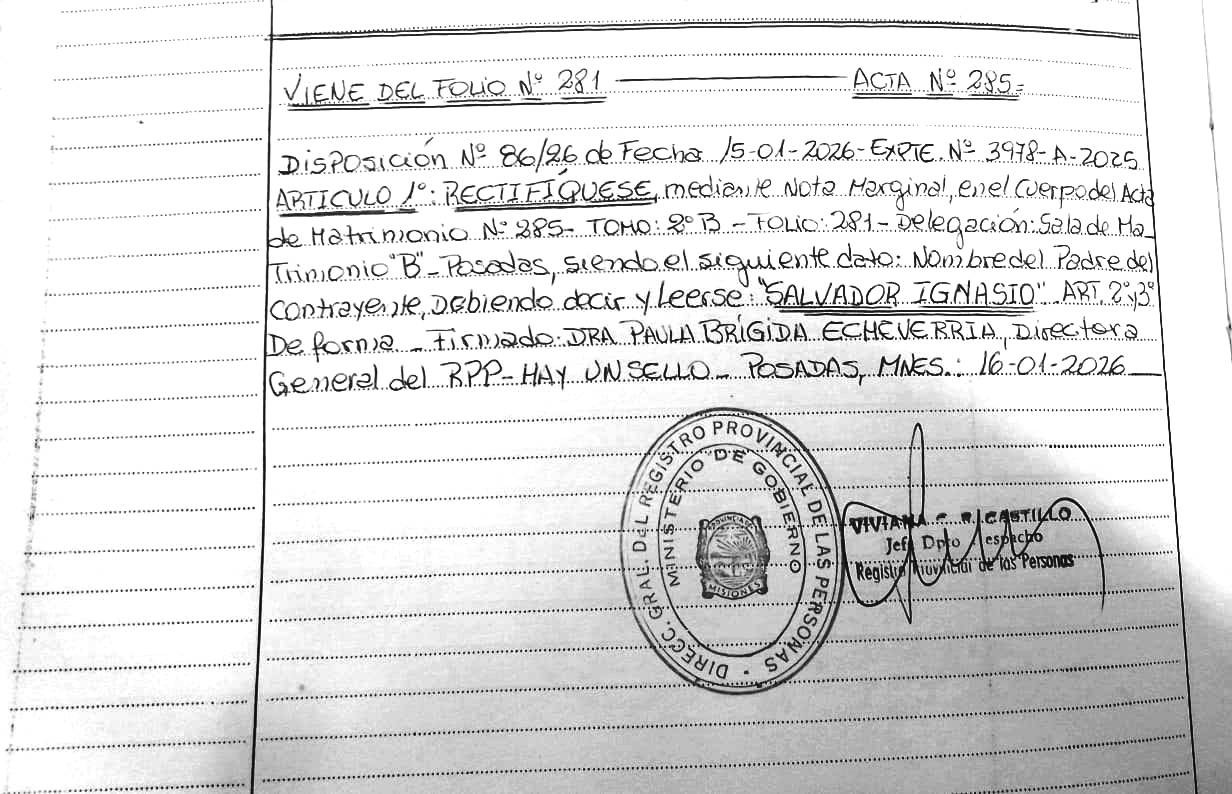 VIENE DEL FOLIO Nº 281 ACTA Nº 285=
DISPOSICIÓN Nº 86/26 de Fecha 15-01-2026-EXPTE. Nº 3978-A-2025
ARTICULO 1º: RECTIFÍQUESE, mediante Nota Marginal, en el Cuerpo del Acta
de Matrimonio Nº 285- TOMO: 2º B - FOLIO: 281 - Delegación: Sala de Ma_
Trimonio "B" - Posadas, siendo el siguiente dato: Nombre del Padre del
Contrayente, Debiendo decir y Leerse: "SALVADOR IGNASIO" ART. 2º y 3º
De forma _ Firmado: DRA PAULA BRÍGIDA ECHEVERRIA, Directora
General del RPP - HAY UN SELLO _ POSADAS, MNES.: 16-01-2026
DIRECC. GRAL. DEL REGISTRO PROVINCIAL DE LAS PERSONAS
MINISTERIO DE GOBIERNO
PROVINCIA DE
MISIONES
VIVIANA CASTILLO
Jef Dpto
Registro Provincial de las Personas